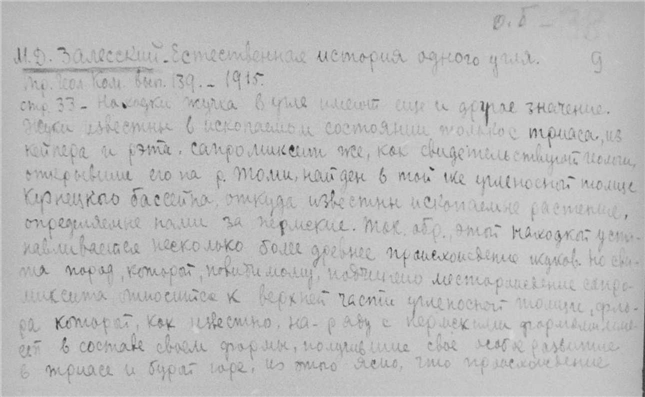 о.б - 38.
М.Д. Залесский - Естественная история одного угля. 9
Тр. Геол. Ком. вып. 139. - 1915.
стр. 33 - Находки жучка в угле имеют еще и другое значение.
Жуки известны в ископаемом состоянии только с триаса, из
кейпера и рэта. Сапромиксит же, как свидетельствуют геологи,
открывшие его на р. Томи, найден в той же угленосной толще
Кузнецкого бассейна, откуда известны ископаемые растения,
определяемые нами за пермские. Так. обр., этой находкой уста-
навливается несколько более древнее происхождение жуков. Но сви-
та пород, которой, повидимому, подчинено месторождение сапро-
миксита, относится к верхней части угленосной толщи, фло-
ра которой, как известно, на-ряду с пермскими формами име-
ет в составе своем формы, получившие свое особое развитие
в триасе и бурой юре, из этого ясно, что происхождение